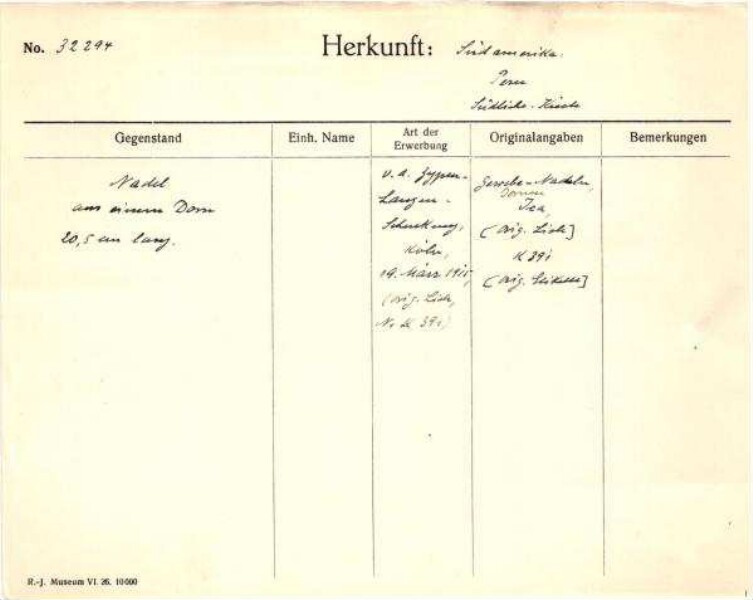 No. 32294
Herkunft: Südamerika.
Peru
Südliche Küste
Gegenstand
Einh. Name
Art der
Erwerbung
Originalangaben
Bemerkungen
Nadel
aus einem Dorn
20,5 cm lang.
v. d. Zypen-
Langen-
Schenkung,
Köln,
19. März 1915,
(orig. Liste,
Nr. K 39i)
Gewebe-Nadeln,
Dornen
Ica,
(orig. Liste]
K 39i
(orig. Etikette]
R.-J. Museum VI. 26. 10000